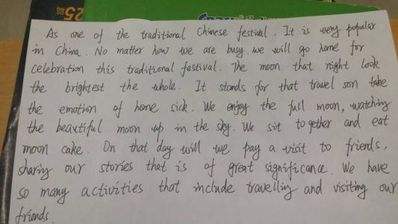 As one of the traditional Chinese festival. It is very popular
in China. No matter how we are busy. we will go home for
celebration this traditional festival. The moon that night look
the brightest the whole. It stands for that travel son take
the emotion of home sick. We enjoy the full moon, watching
the beautiful moon up in the sky. We sit together and eat
moon cake. On that day will we pay a visit to friends,
sharing our stories that is of great significance. We have
so many activities that include travelling and visiting our
friends.